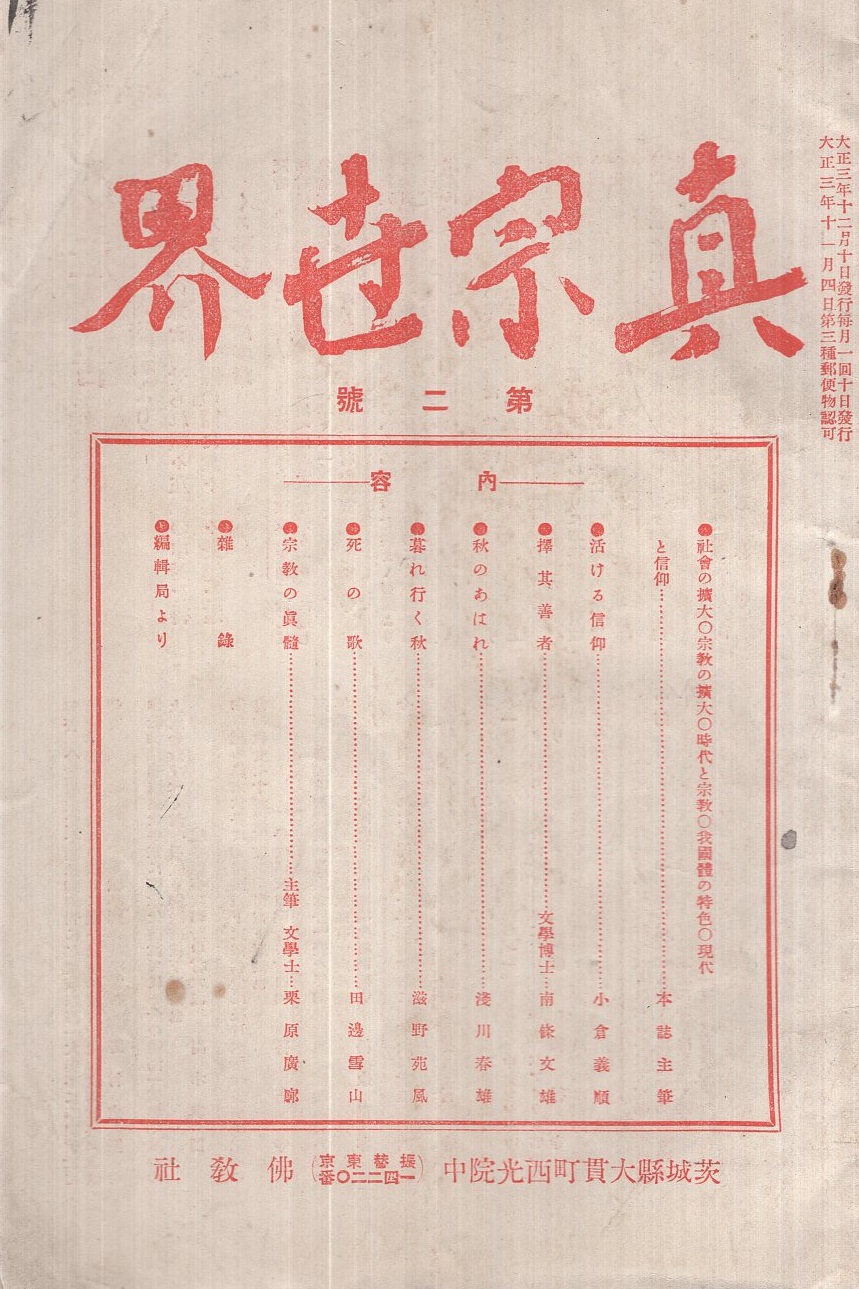 大正三年十二月十日發行每月一回十日發行
大正三年十一月四日第三種郵便物認可
真宗世界
第二號
內容
●社會の擴大〇宗教の擴大〇時代と宗教〇我國體の特色〇現代
と信仰………本誌主筆
●活ける信仰………小倉義順
●擇其善者………文學博士…南條文雄
●秋のあはれ………淺川春雄
●暮れ行く秋………滋野苑風
●死の歌………田邊雪山
●宗教の眞髓………主筆 文學士…栗原廣廓
●雜錄
●編輯局より
茨城縣大貫町西光院中（振替東京一四二二〇番）佛教社